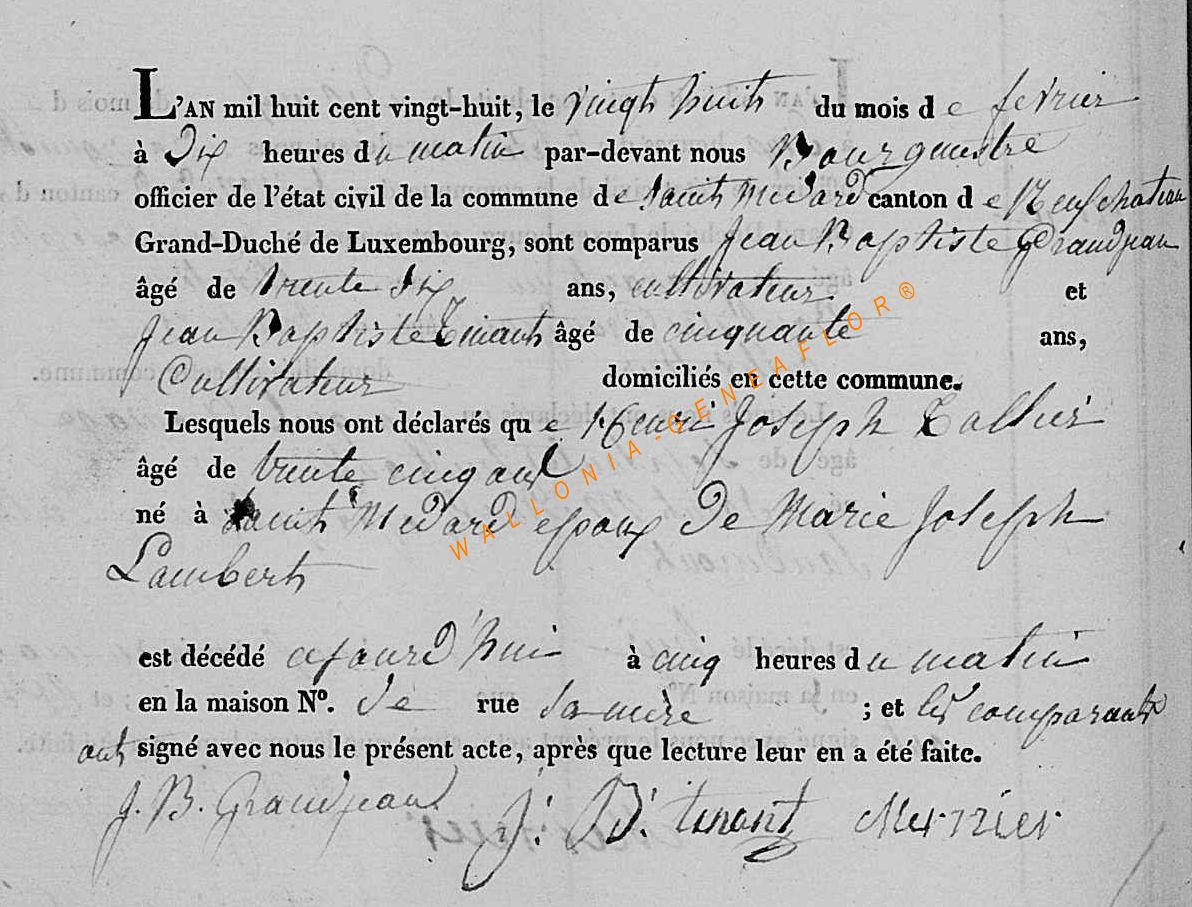 L'AN mil huit cent vingt-huit, le vingt huit du mois de fevrier
à Dix heures du matin par-devant nous Bourguestre
officier de l'état civil de la commune de Saint Medard canton de Neufchateau
Grand-Duché de Luxembourg, sont comparus Jean Baptiste Grandjean
âgé de trente six ans, cultivateur et
Jean Baptiste Tinant âgé de cinquante ans,
Cultivateur domiciliés en cette commune.
Lesquels nous ont déclarés que Henri Joseph
âgé de trente cinq ans
né à Saint Medard epoux De Marie Joseph
Lambert
est décédé ajourd'hui à cinq heures du matin
en la maison N°. de rue sa mère ; et les comparants
ont signé avec nous le présent acte, après que lecture leur en a été faite.
J. B. Grandjean J. B. tinant
WALLONIA-GENEAFLOR®